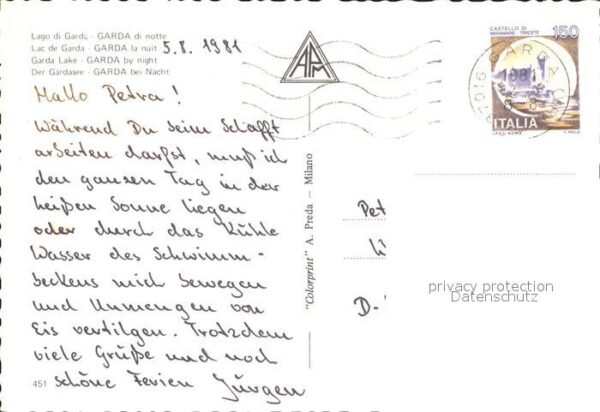 Lago di Garda - GARDA di notte
Lac de Garda - GARDA la nuit
Garda Lake - GARDA by night
Der Gardasee - GARDA bei Nacht
5.8.1981
Hallo Petra!
Während Du beim Schafft
arbeiten darfst, muß ich
den ganzen Tag in der
heißen Sonne liegen
oder durch das Kühle
Wasser des Schwimm-
beckens mich bewegen
und Unmengen von
Eis vertilgen. Trotzdem
viele Grüße und noch
schöne Ferien Jürgen
451
"Colorprint" A. Preda - Milano
APM
CASTELLO DI
MIRAMARE TRIESTE
150
ITALIA
GARDA
1981
Pet
D-
privacy protection
Datenschutz